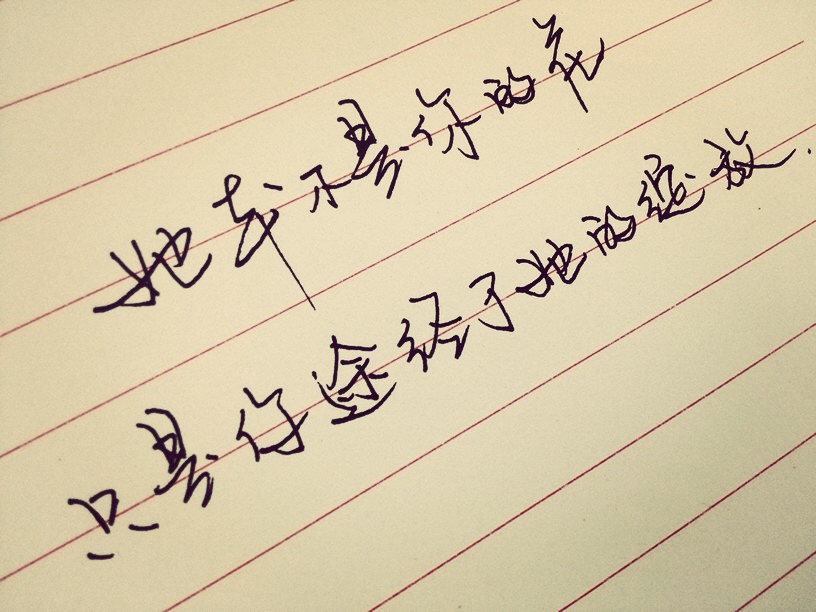 她本不是你的花
只是你途经了她的绽放.